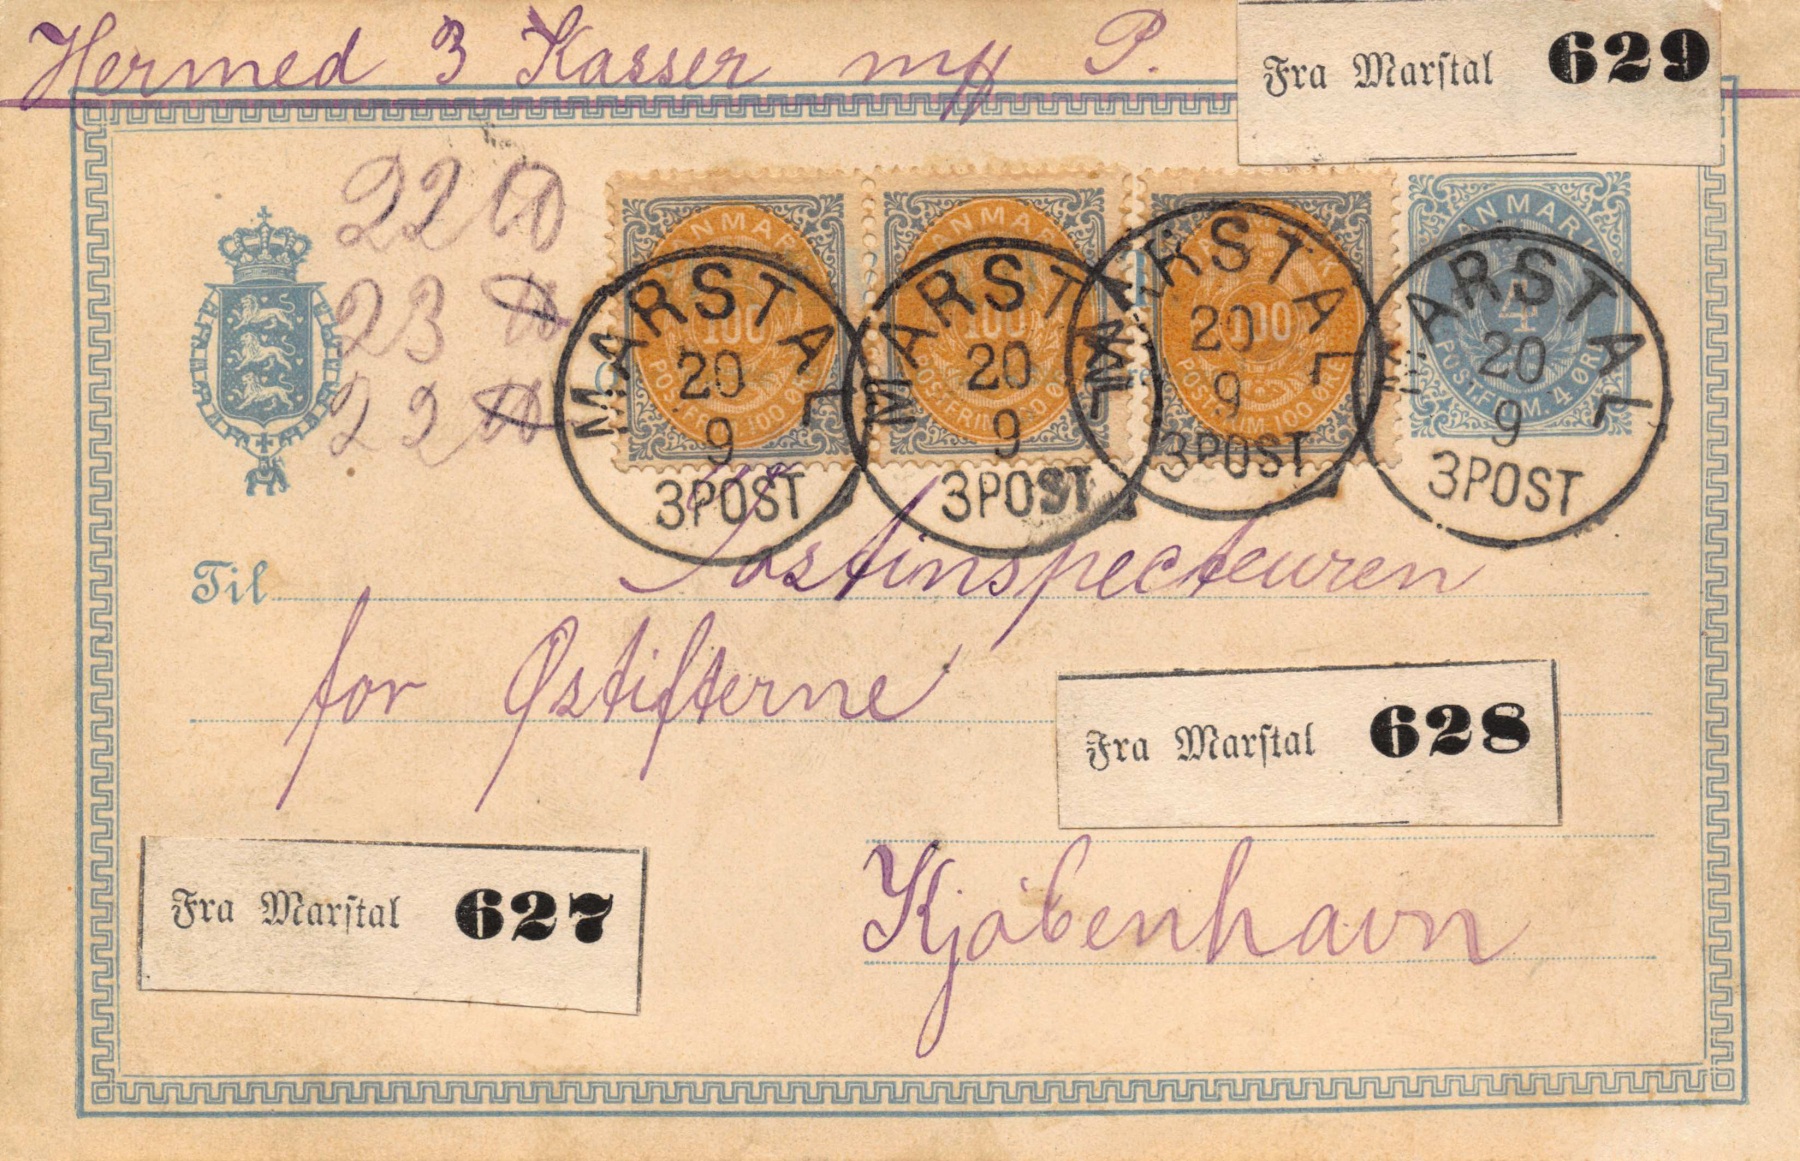 Hermed 3 Kasser mff P.
Fra Marstal 629
22 ₶
23 ₶
22 ₶
DANMARK 100 POSTFRIM. 100 ØRE
DANMARK 100 POSTFRIM. 100 ØRE
DANMARK 100 POSTFRIM. 100 ØRE
DANMARK 4 POSTFRIM. 4 ØRE
MARSTAL 20 9 3POST
MARSTAL 20 9 3POST
MARSTAL 20 9 3POST
MARSTAL 20 9 3POST
Til Postinspecteuren
for Østifterne
Fra Marstal 628
Kjøbenhavn
Fra Marstal 627